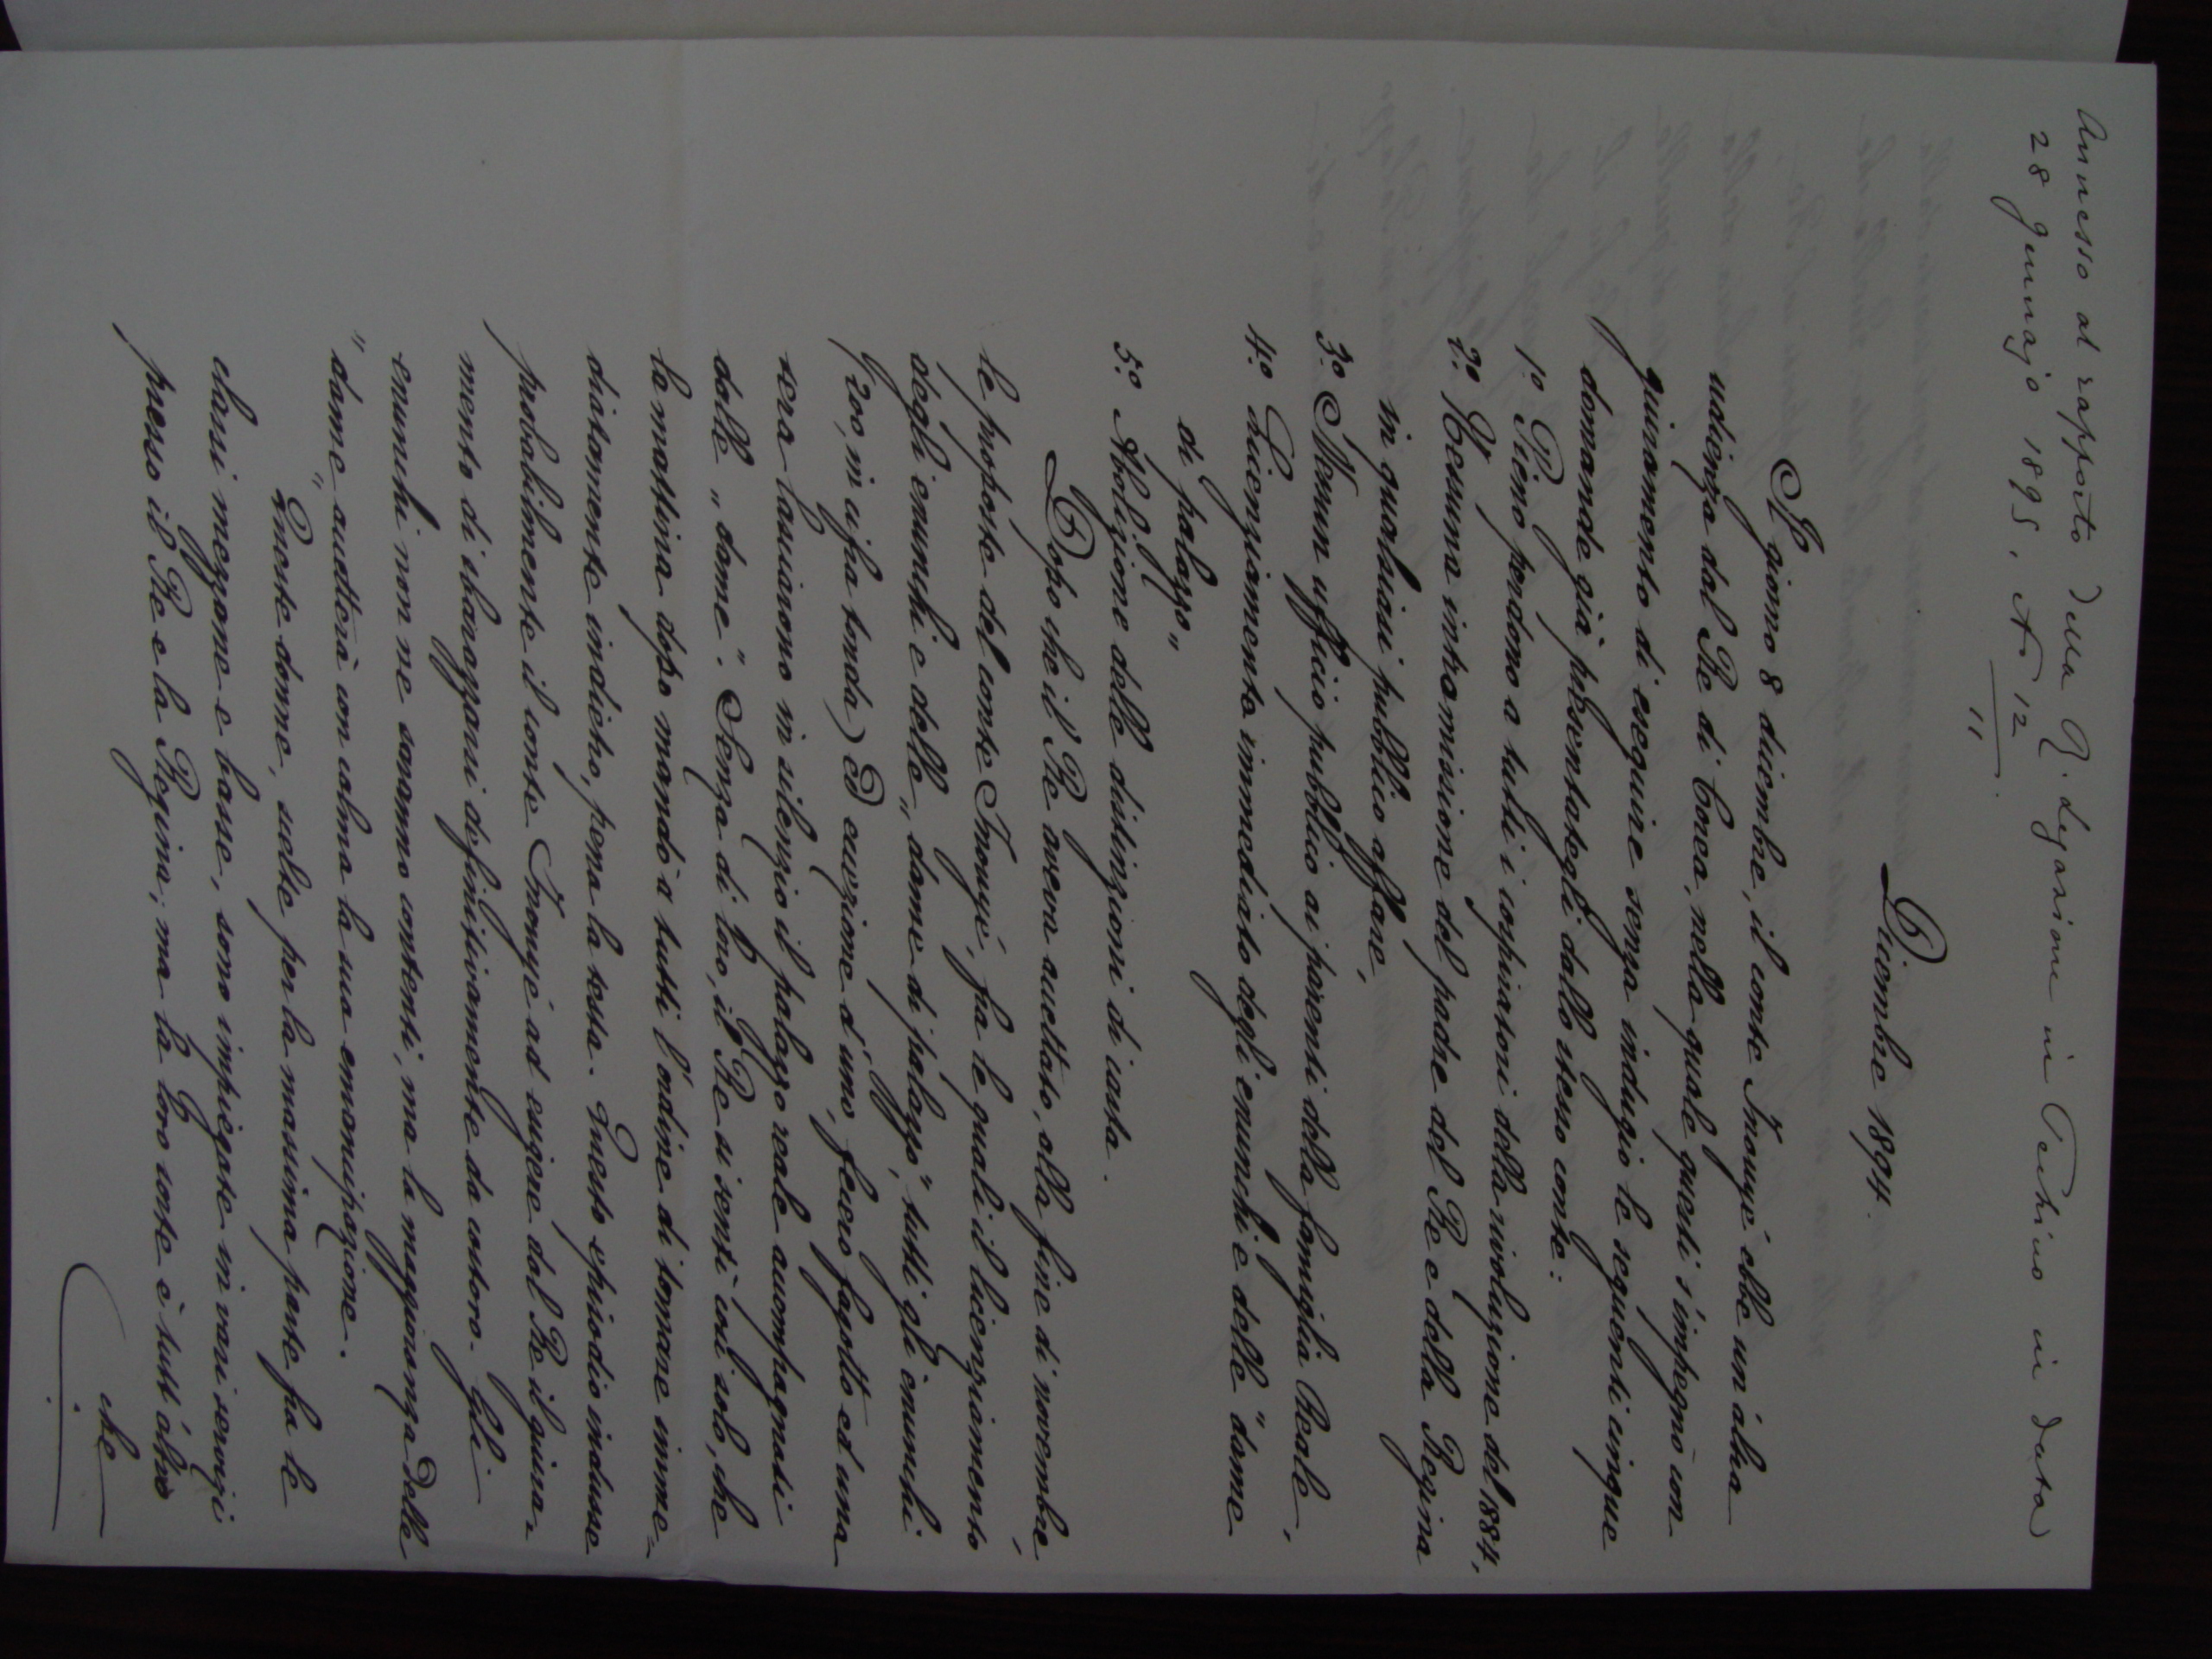 Annesso al rapporto della R. Legazione in Pechino in data
28 gennajo 1895, N. 12
11
Dicembre 1894.
Il giorno 8 dicembre, il conte Inouyé ebbe un'altra
udienza dal Re di Corea, nella quale questi s'impegnò con
giuramento di eseguire senza indugio le seguenti cinque
domande già presentategli dallo stesso conte:
1.º Pieno perdono a tutti i cospiratori della rivoluzione del 1884,
2.º Nessuna intromissione del padre del Re e della Regina
in qualsiasi pubblico affare,
3.º Nessun ufficio pubblico ai parenti della famiglia Reale,
4.º Licenziamento immediato degli eunuchi e delle "dame
di palazzo"
5.º Abolizione delle distinzioni di casta.
Dopo che il Re aveva accettato, alla fine di novembre,
le proposte del conte Inouyé, fra le quali il licenziamento
degli eunuchi e delle "dame di palazzo", tutti gli eunuchi
(200, in cifra tonda) ad eccezione d'uno, fecero fagotto ed una
sera lasciarono in silenzio il palazzo reale accompagnati
dalle "dame". Senza di loro, il Re si sentì così solo, che
la mattina dopo mandò a tutti l'ordine di tornare imme=
diatamente indietro, pena la testa. Questo episodio indusse
probabilmente il conte Inouyé ad esigere dal Re il giura=
mento di sbarazzarsi definitivamente da costoro. Gli
eunuchi non ne saranno contenti, ma la maggioranza delle
"dame" accetterà con calma la sua emancipazione.
Queste donne, scelte per la massima parte fra le
classi mezzane e basse, sono impiegate in varii servigii
presso il Re e la Regina; ma la loro sorte è tutt'altro
che